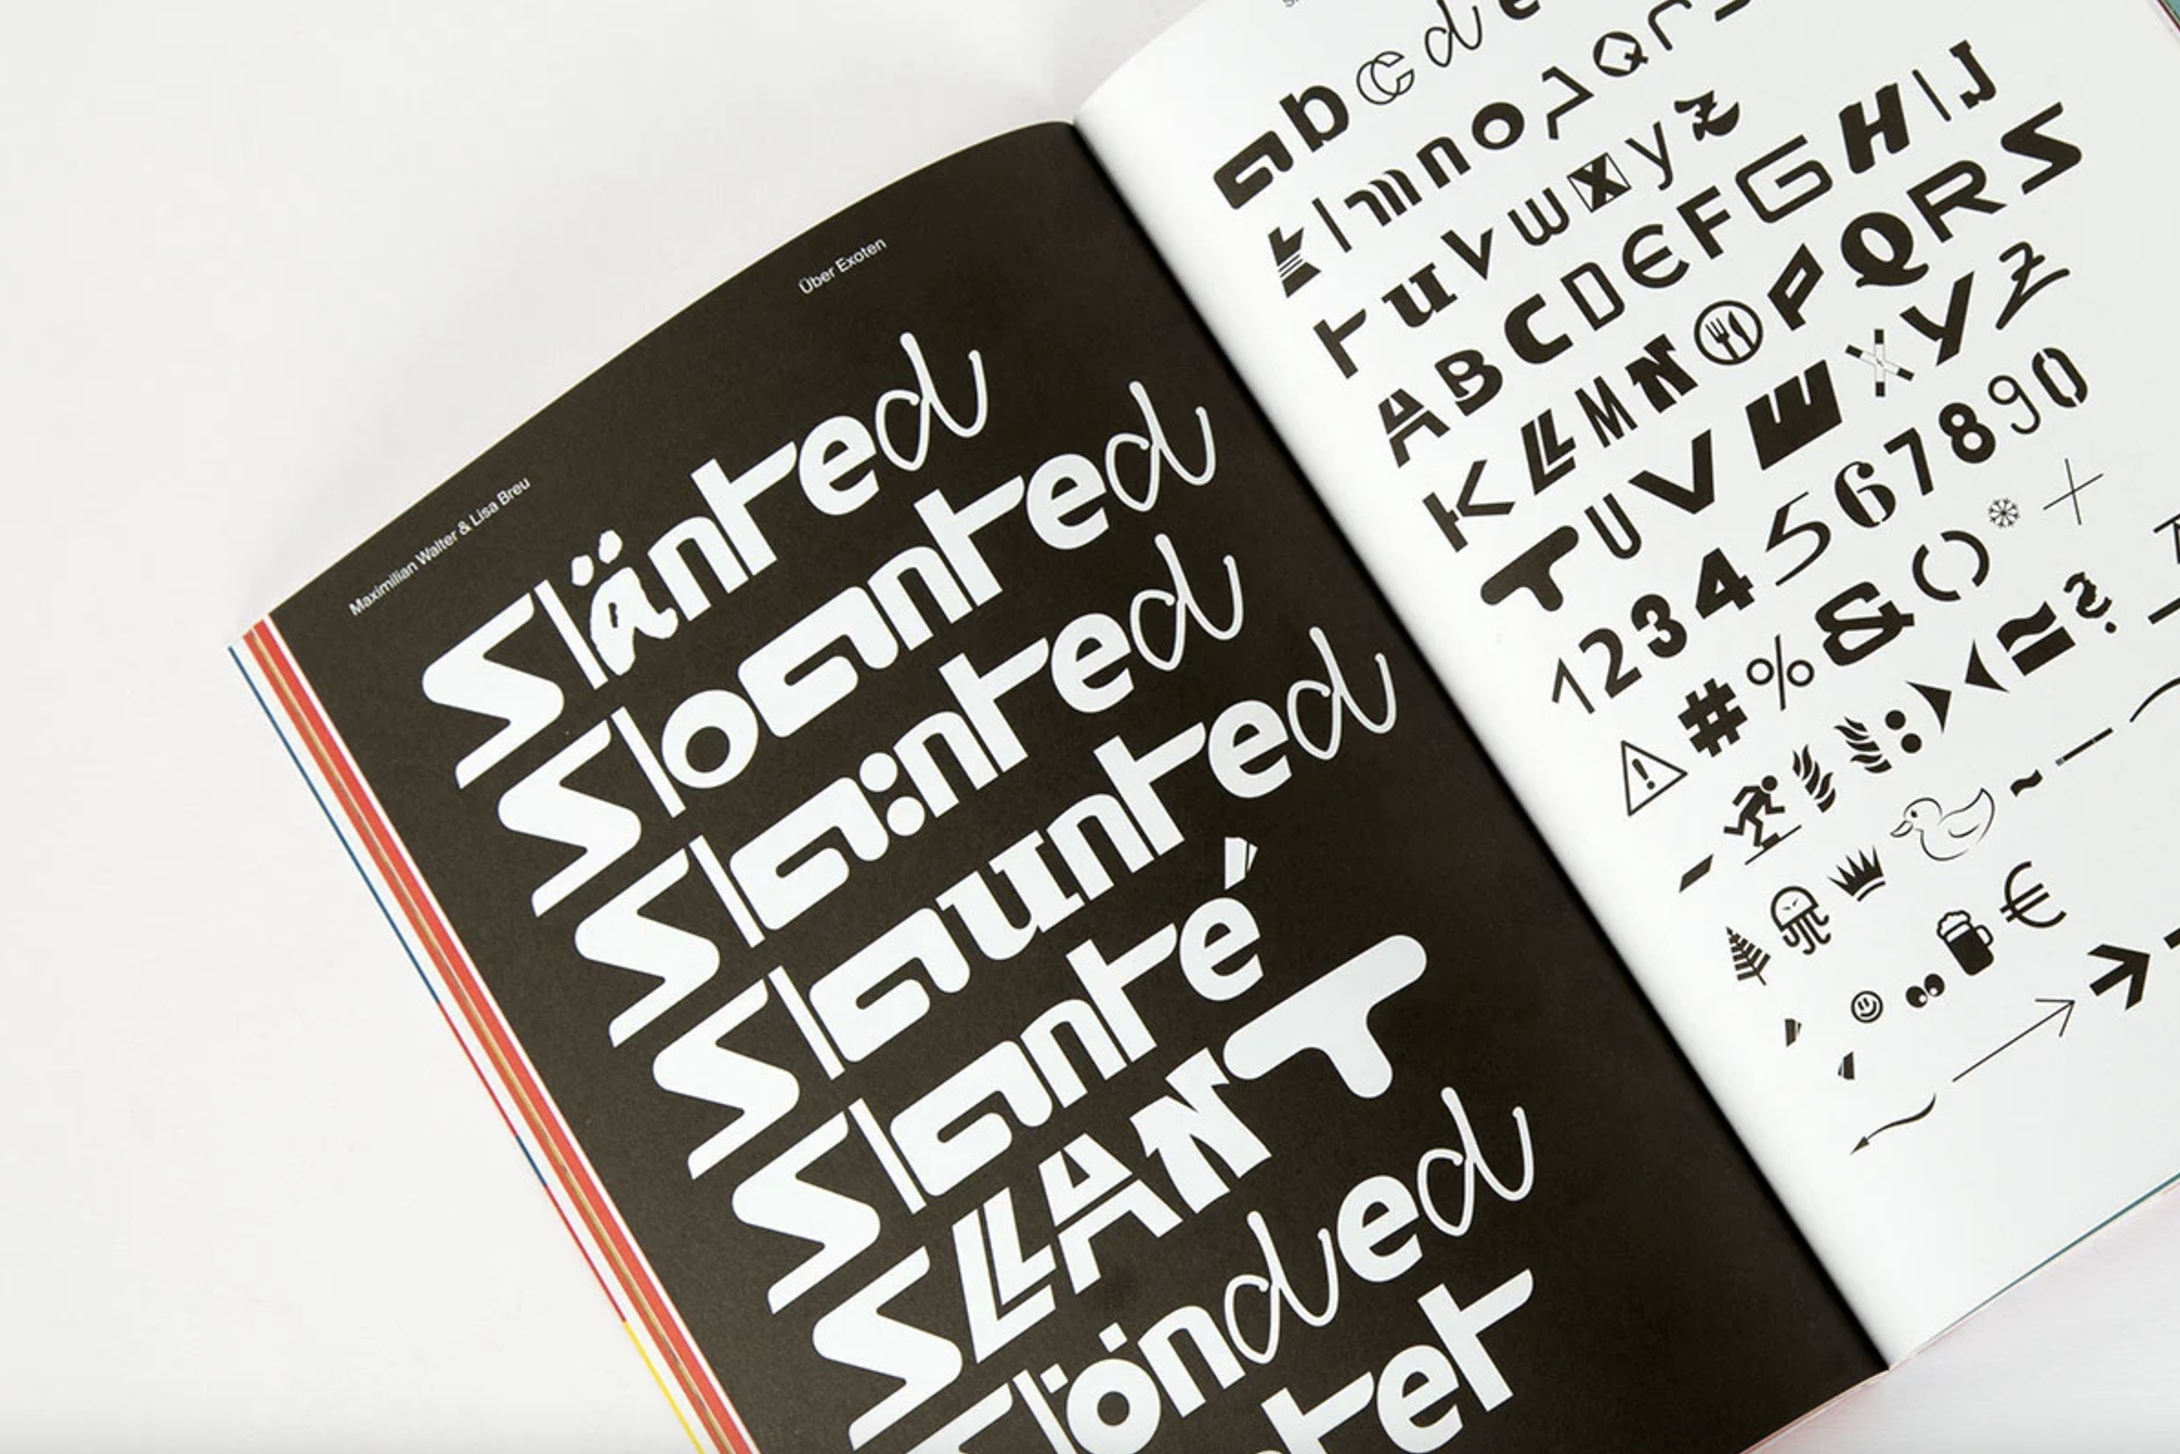 Maximilian Walter & Lisa Breu
Über Exoten
Slänted
Sloanted
Sla:nted
Slaunted
Slanté
SLANT
Slönded
a b c d e
k l m n o
t u v w x y z
A B C D E F G H I J
K L M N O P Q R S
T U V W X Y Z
1 2 3 4 5 6 7 8 9 0
! # % & ( ) *
€